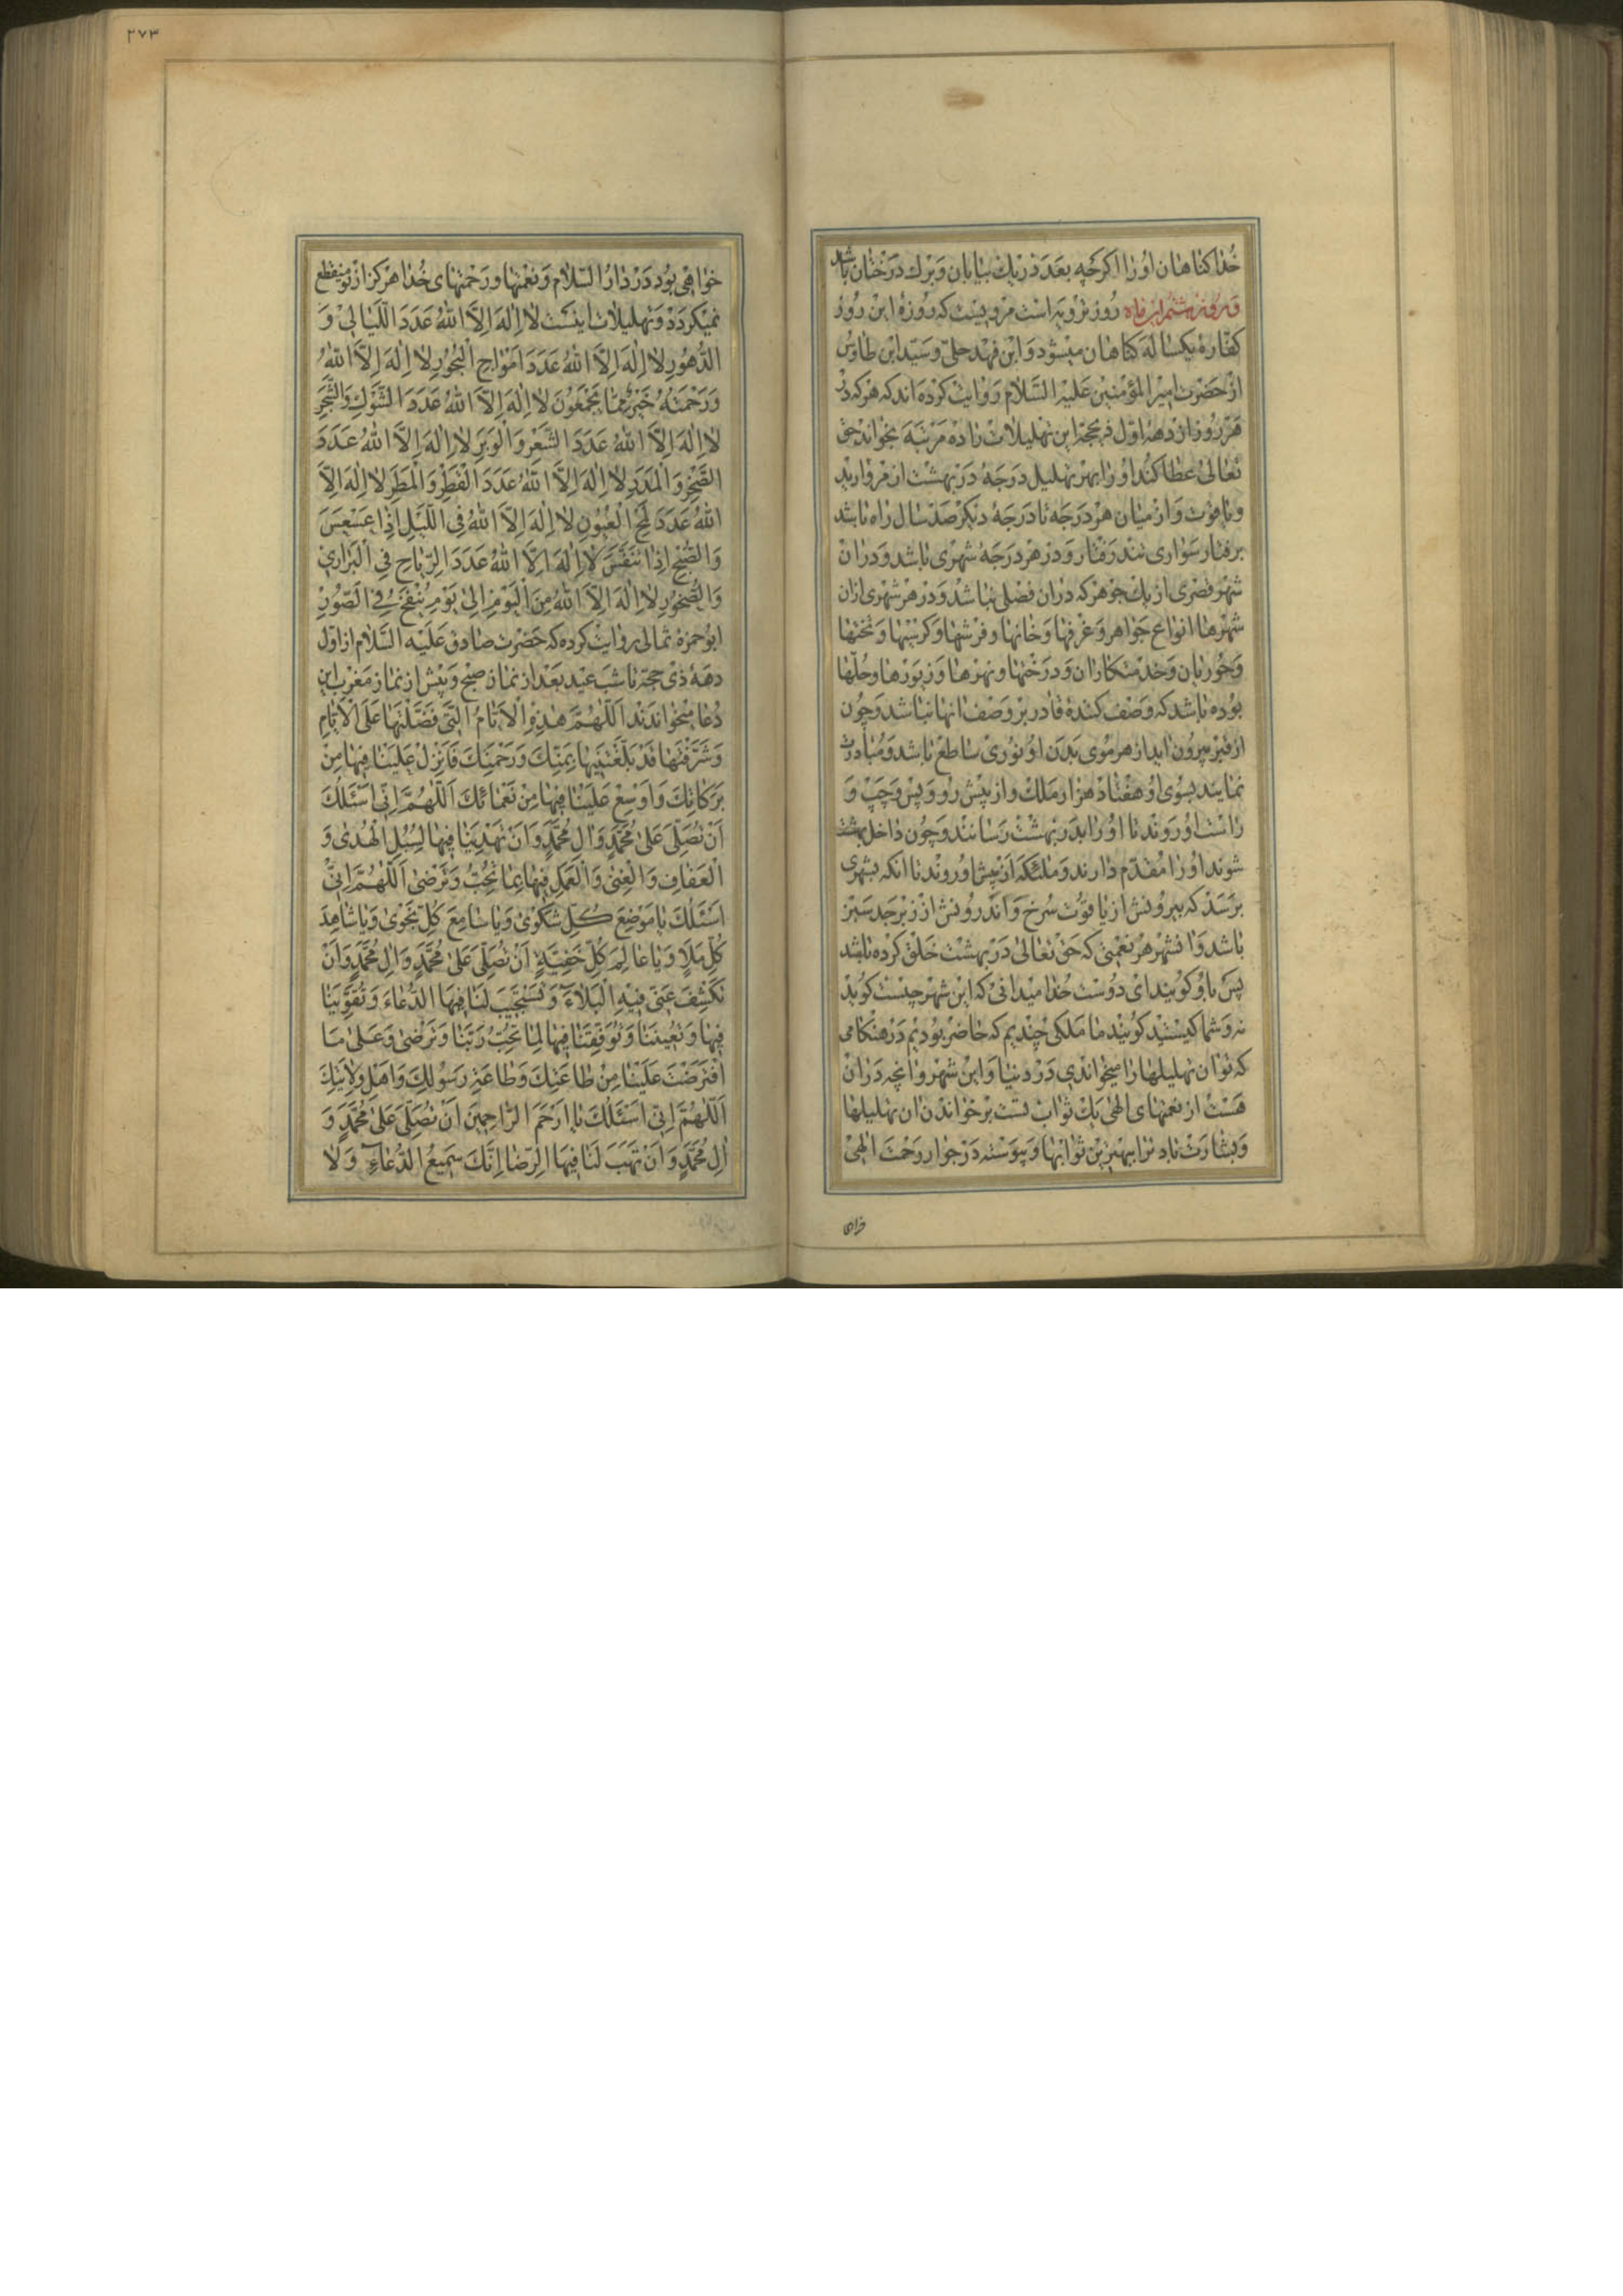 خدا کناهان او را اکرچه بعدد ریك بیابان و برك درختان باشد
و روز هشتم این ماه روز ترویه است مرویست که روزه این روز
کفاره یکساله کناهان میشود و ابن فهد حلی و سید ابن طاوس
از حضرت امیر المؤمنین علیه السلام روایت کرده اند که هرکه در
هر روز از دهه اول ذیحجه این تهلیلات را ده مرتبه بخواند حق
تعالی عطا کند او را بهر تهلیل درجهٔ در بهشت از مروارید
و یاقوت و از میان هر درجه تا درجهٔ دیکر صد سال راه باشد
برفتار سواری تند رفتار و در هر درجهٔ شهری باشد و در ان
شهر قصری از یك جوهر که در ان فصلی نباشد و در هر شهری از ان
شهرها انواع جواهر و غرفها و خانها و فرشها و کرسیها و تختها
و حوریان و خدمتکاران و درختها و نهرها و زیورها و حلها
بوده باشد که وصف کنندهٔ قادر بر وصف انها نباشد و چون
از قبر بیرون اید از هر موی بدن او نوری ساطع باشد و مبادرت
نمایند بسوی او هفتاد هزار ملك و از پیش رو و پس و چپ و
راست او روند تا او را بدر بهشت رسانند و چون داخل بهشت
شوند او را مقدم دارند و ملئکه از پیش او روند تا انکه بشهری
برسد که بیرونش از یاقوت سرخ و اندرونش از زبرجد سبز
باشد و ان شهر هر نعمتی که حق تعالی در بهشت خلق کرده باشد
پس باو کویند ای دوست خدا میدانی که این شهر چیست کوید
نه و شما کیستید کویند ما ملکی چندیم که حاضر بودیم در هنکامی
که تو ان تهلیلها را میخواندی در دنیا و این شهر و انچه در ان
هست از نعمتهای الهی یك ثوابست بر خواندن ان تهلیلها
و بشارت باد ترا ببهترین ثوابها و پیوسته در جوار رحمت الهی
خواهی
۲۷۳
خواهی بود در دار السلام و نعمتها و رحمتهای خدا هرکز از تو منقطع
نمیکردد و تهلیلات اینست لا اِلٰهَ اِلَّا اللهُ عَدَدَ اللَّیالی وَ
الدُّهُورِ لا اِلٰهَ اِلَّا اللهُ عَدَدَ اَمْواجِ الْبُحُورِ لا اِلٰهَ اِلَّا اللهُ
وَرَحْمَتُهُ خَیْرٌ مِمّا یَجْمَعُونَ لا اِلٰهَ اِلَّا اللهُ عَدَدَ الشَّوْكِ وَالشَّجَرِ
لا اِلٰهَ اِلَّا اللهُ عَدَدَ الشَّعْرِ وَالْوَبَرِ لا اِلٰهَ اِلَّا اللهُ عَدَدَ
الصَّخْرِ وَالْمَدَرِ لا اِلٰهَ اِلَّا اللهُ عَدَدَ الْقَطْرِ وَالْمَطَرِ لا اِلٰهَ اِلَّا
اللهُ عَدَدَ لَمْحِ الْعُیُونِ لا اِلٰهَ اِلَّا اللهُ فِی اللَّیْلِ اِذا عَسْعَسَ
وَالصُّبْحِ اِذا تَنَفَّسَ لا اِلٰهَ اِلَّا اللهُ عَدَدَ الرِّیاحِ فِی الْبَراری
وَالصُّخُورِ لا اِلٰهَ اِلَّا اللهُ مِنَ الْیَوْمِ اِلیٰ یَوْمِ یُنْفَخُ فِی الصُّورِ
ابو حمزه ثمالی روایت کرده که حضرت صادق علیه السلام از اول
دههٔ ذی حجه تا شب عید بعد از نماز صبح و پیش از نماز مغرب این
دعا میخواندند اَللّٰهُمَّ هٰذِهِ الْاَیّامُ الَّتی فَضَّلْتَها عَلَی الْاَیّامِ
وَشَرَّفْتَها قَدْ بَلَّغْتَنیها بِمَنِّكَ وَرَحْمَتِكَ فَاَنْزِلْ عَلَیْنا فیها مِنْ
بَرَکاتِكَ وَاَوْسِعْ عَلَیْنا فیها مِنْ نَعْمائِكَ اَللّٰهُمَّ اِنّی اَسْئَلُكَ
اَنْ تُصَلِّیَ عَلیٰ مُحَمَّدٍ وَالِ مُحَمَّدٍ وَاَنْ تَهْدِیَنا فیها لِسُبُلِ الْهُدیٰ وَ
الْعَفافِ وَالْغِنیٰ وَالْعَمَلِ فیها بِما تُحِبُّ وَتَرْضیٰ اَللّٰهُمَّ اِنّی
اَسْئَلُكَ یا مَوْضِعَ کُلِّ شَکْویٰ وَیا سامِعَ کُلِّ نَجْویٰ وَیا شاهِدَ
کُلِّ مَلَاٍ وَیا عالِمَ کُلِّ خَفِیَّةٍ اَنْ تُصَلِّیَ عَلیٰ مُحَمَّدٍ وَالِ مُحَمَّدٍ وَاَنْ
تَکْشِفَ عَنّی فیهِ الْبَلاءَ وَتَسْتَجیبَ لَنا فیهَا الدُّعاءَ وَتُقَوِّیَنا
فیها وَتُعینَنا وَتُوَفِّقَنا فیها لِما تُحِبُّ رَبَّنا وَتَرْضیٰ وَعَلیٰ مَا
افْتَرَضْتَ عَلَیْنا مِنْ طاعَتِكَ وَطاعَةِ رَسُولِكَ وَاَهْلِ وِلایَتِكَ
اَللّٰهُمَّ اِنّی اَسْئَلُكَ یا اَرْحَمَ الرّاحِمینَ اَنْ تُصَلِّیَ عَلیٰ مُحَمَّدٍ وَ
الِ مُحَمَّدٍ وَاَنْ تَهَبَ لَنا فیهَا الرِّضا اِنَّكَ سَمیعُ الدُّعاءِ وَلا